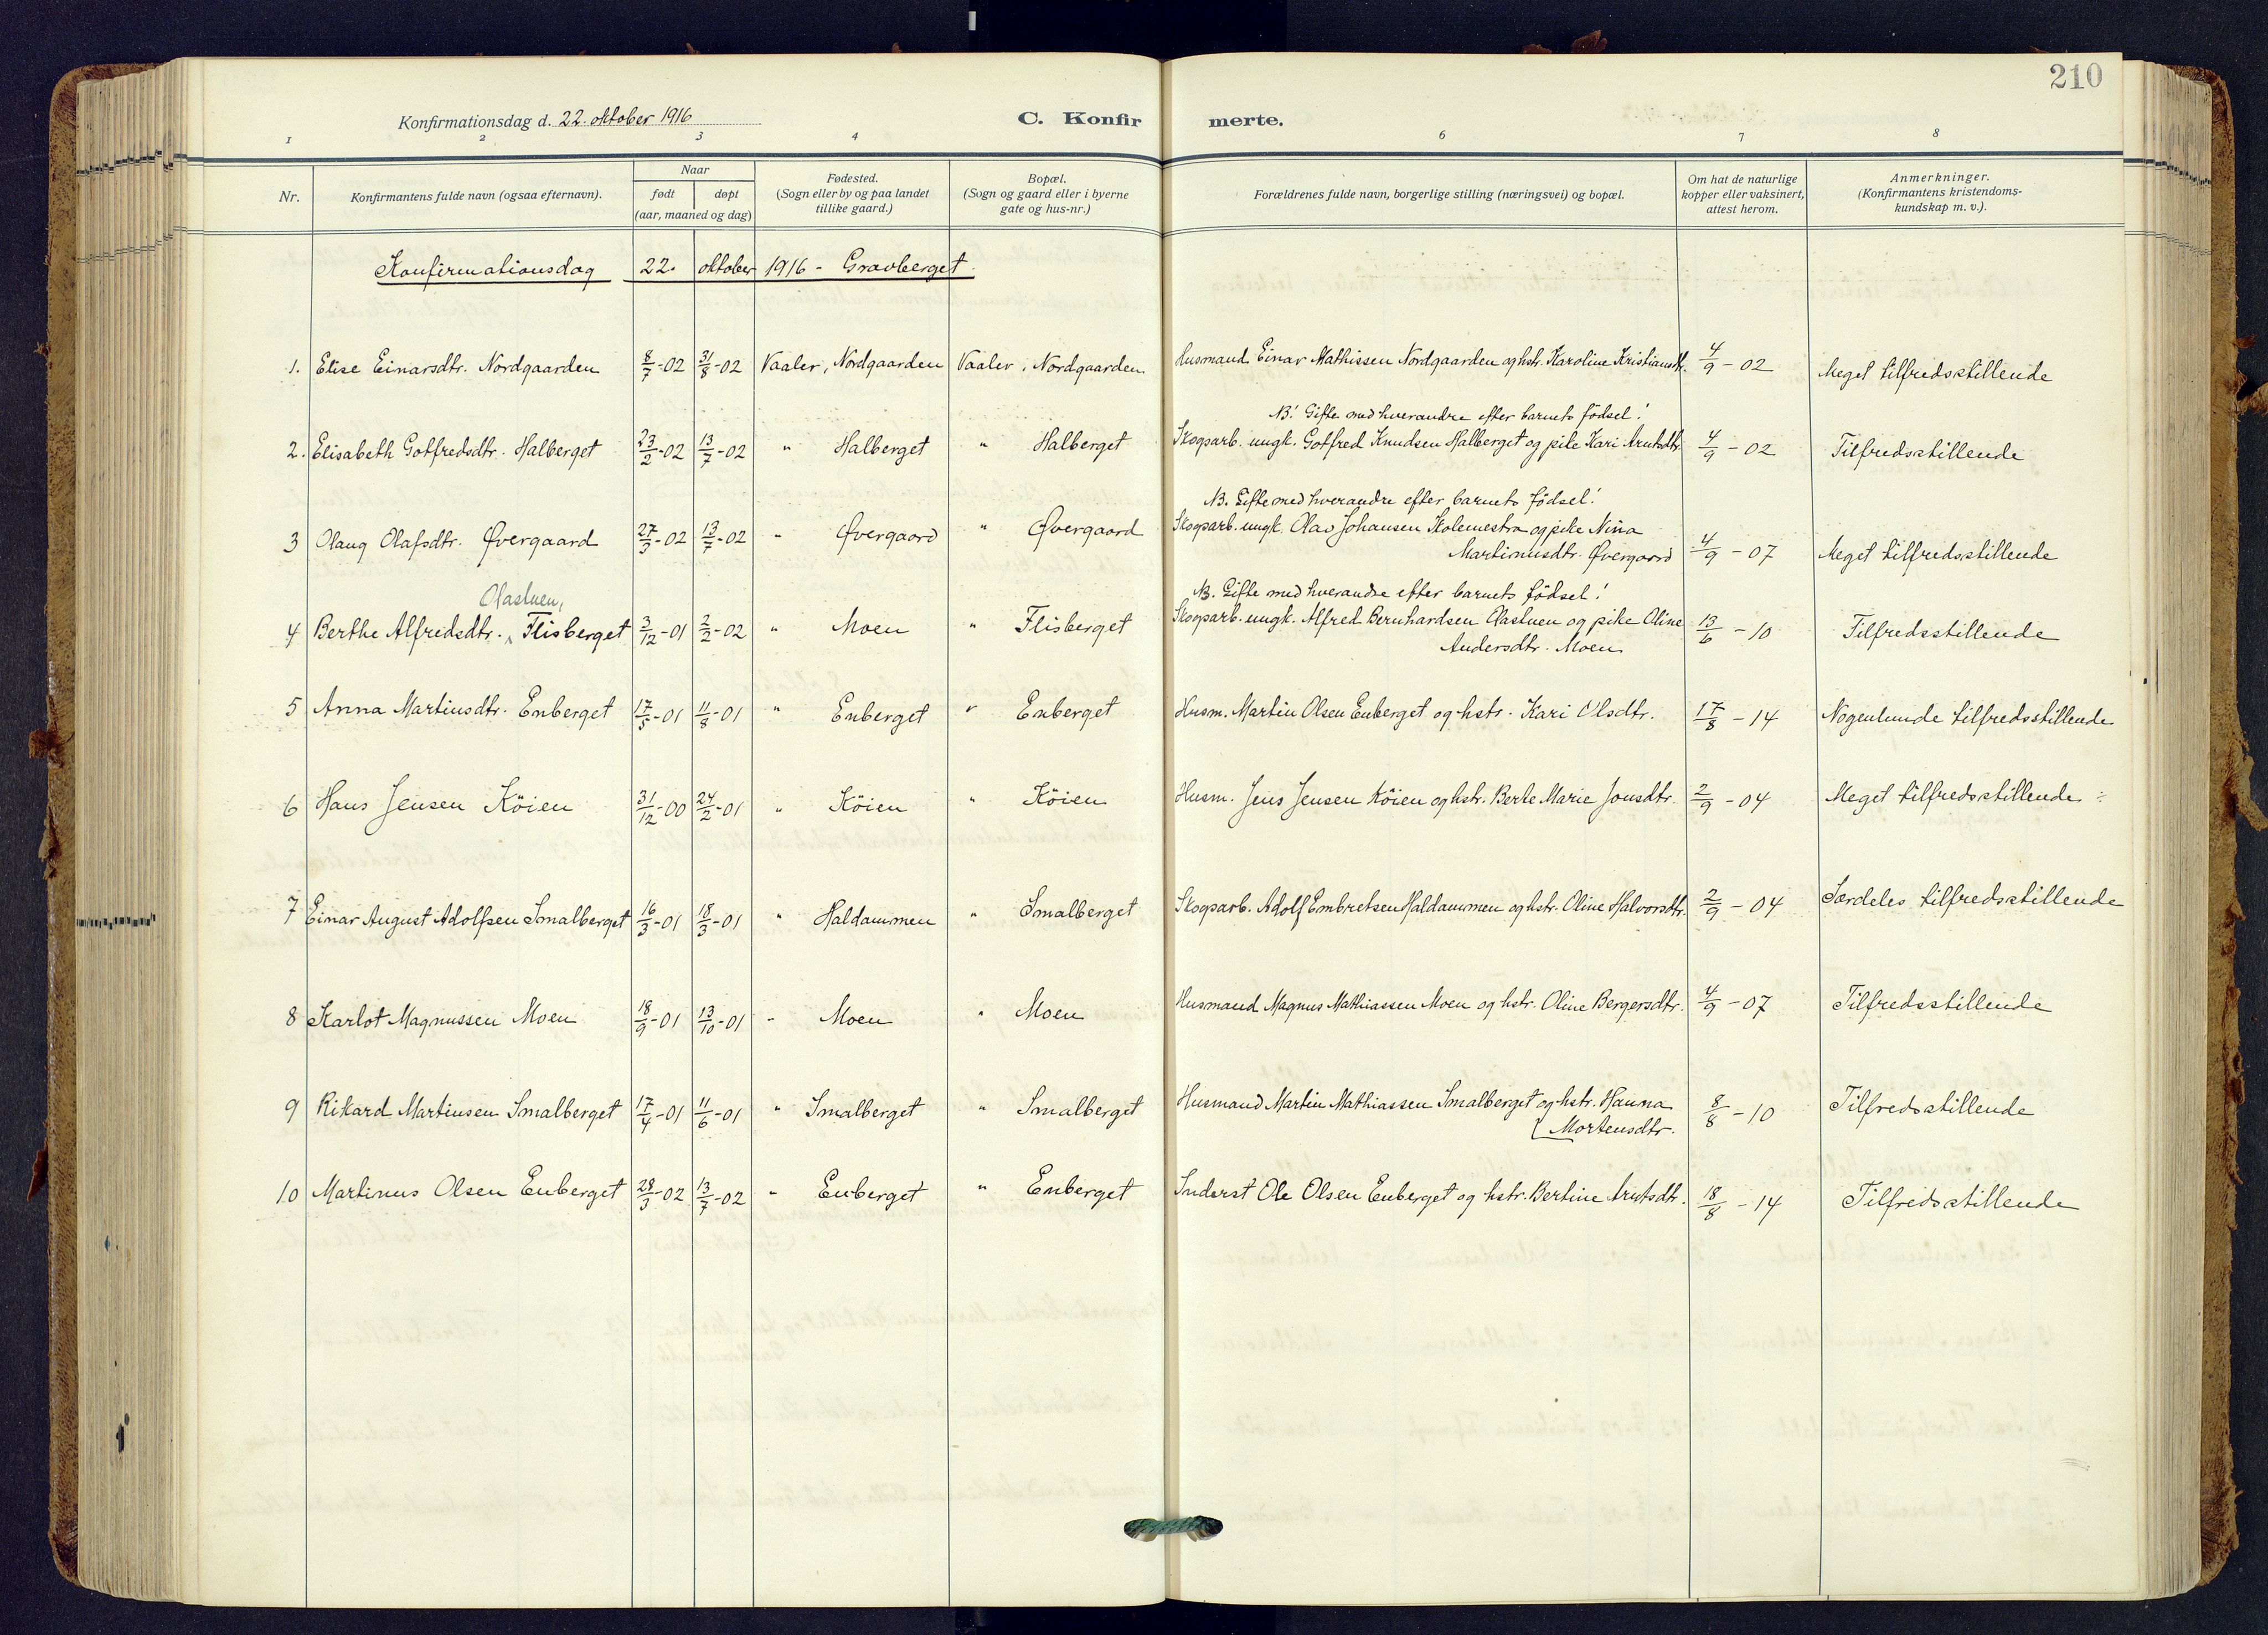 210
Konfirmationsdag d. 22. oktober 1916
C. Konfirmerte.
1 2 3 4 6 7 8
Nr.
Konfirmantens fulde navn (ogsaa efternavn).
Naar
født døpt
(aar, maaned og dag)
Fødested.
(Sogn eller by og paa landet
tillike gaard.)
Bopæl.
(Sogn og gaard eller i byerne
gate og hus-nr.)
Forældrenes fulde navn, borgerlige stilling (næringsvei) og bopæl.
Om hat de naturlige
kopper eller vaksinert,
attest herom.
Anmerkninger.
(Konfirmantens kristendoms-
kundskap m. v.).
Konfirmationsdag 22. oktober 1916 - Gravberget
1. Elise Einarsdtr. Nordgaarden 8/7-02 31/8-02 Vaaler, Nordgaarden Vaaler, Nordgaarden Husmand Einar Mathissen Nordgaarden og hstr. Karoline Kristiansdtr. 4/9-02 Meget tilfredsstillende
NB! Gifte med hverandre efter barnets födsel!
2. Elisabeth Gotfredsdtr. Halberget 23/2-02 13/7-02 " Halberget " Halberget Skogsarb. ungk. Gotfred Knudsen Halberget og pike Kari Arntsdtr. 4/9-02 Tilfredsstillende
NB. Gifte med hverandre efter barnets födsel!
3 Olaug Olafsdtr. Øvergaard 27/3-02 13/7-02 " Øvergaard " Øvergaard Skogsarb. ungk. Olav Johansen Skolemestra og pike Nina
Martinusdtr. Øvergaard 4/9-07 Meget tilfredsstillende
NB. Gifte med hverandre efter barnets födsel!
Olastuen,
4 Berthe Alfredsdtr. Flisberget 3/12-01 2/2-02 " Moen " Flisberget Skogsarb. ungk. Alfred Bernhardsen Olastuen og pike Oline
Andersdtr. Moen 13/6-10 Tilfredsstillende
5 Anna Martinsdtr. Enberget 17/5-01 11/8-01 " Enberget " Enberget Husm. Martin Olsen Enberget og hstr. Kari Olsdtr. 17/8-14 Nogenlunde tilfredsstillende
6 Hans Jensen Köien 31/12-00 24/2-01 " Köien " Köien Husm. Jens Jensen Köien og hstr. Berte Marie Jonsdtr. 2/9-04 Meget tilfredsstillende
7 Einar August Adolfsen Smalberget 16/3-01 18/3-01 " Haldammen " Smalberget Skogsarb. Adolf Embretsen Haldammen og hstr. Oline Halvorsdtr. 2/9-04 Særdeles tilfredsstillende
8 Karlot Magnussen Moen 18/9-01 13/10-01 " Moen " Moen Husmand Magnus Mathiassen Moen og hstr. Oline Bergersdtr. 4/9-07 Tilfredsstillende
9 Rikard Martinsen Smalberget 17/4-01 11/6-01 " Smalberget " Smalberget Husmand Martin Mathiassen Smalberget og hstr. Hanna
Mortensdtr. 8/8-10 Tilfredsstillende
10 Martinus Olsen Enberget 28/3-02 13/7-02 " Enberget " Enberget Inderst Ole Olsen Enberget og hstr. Bertine Arntsdtr. 18/8-14 Tilfredsstillende